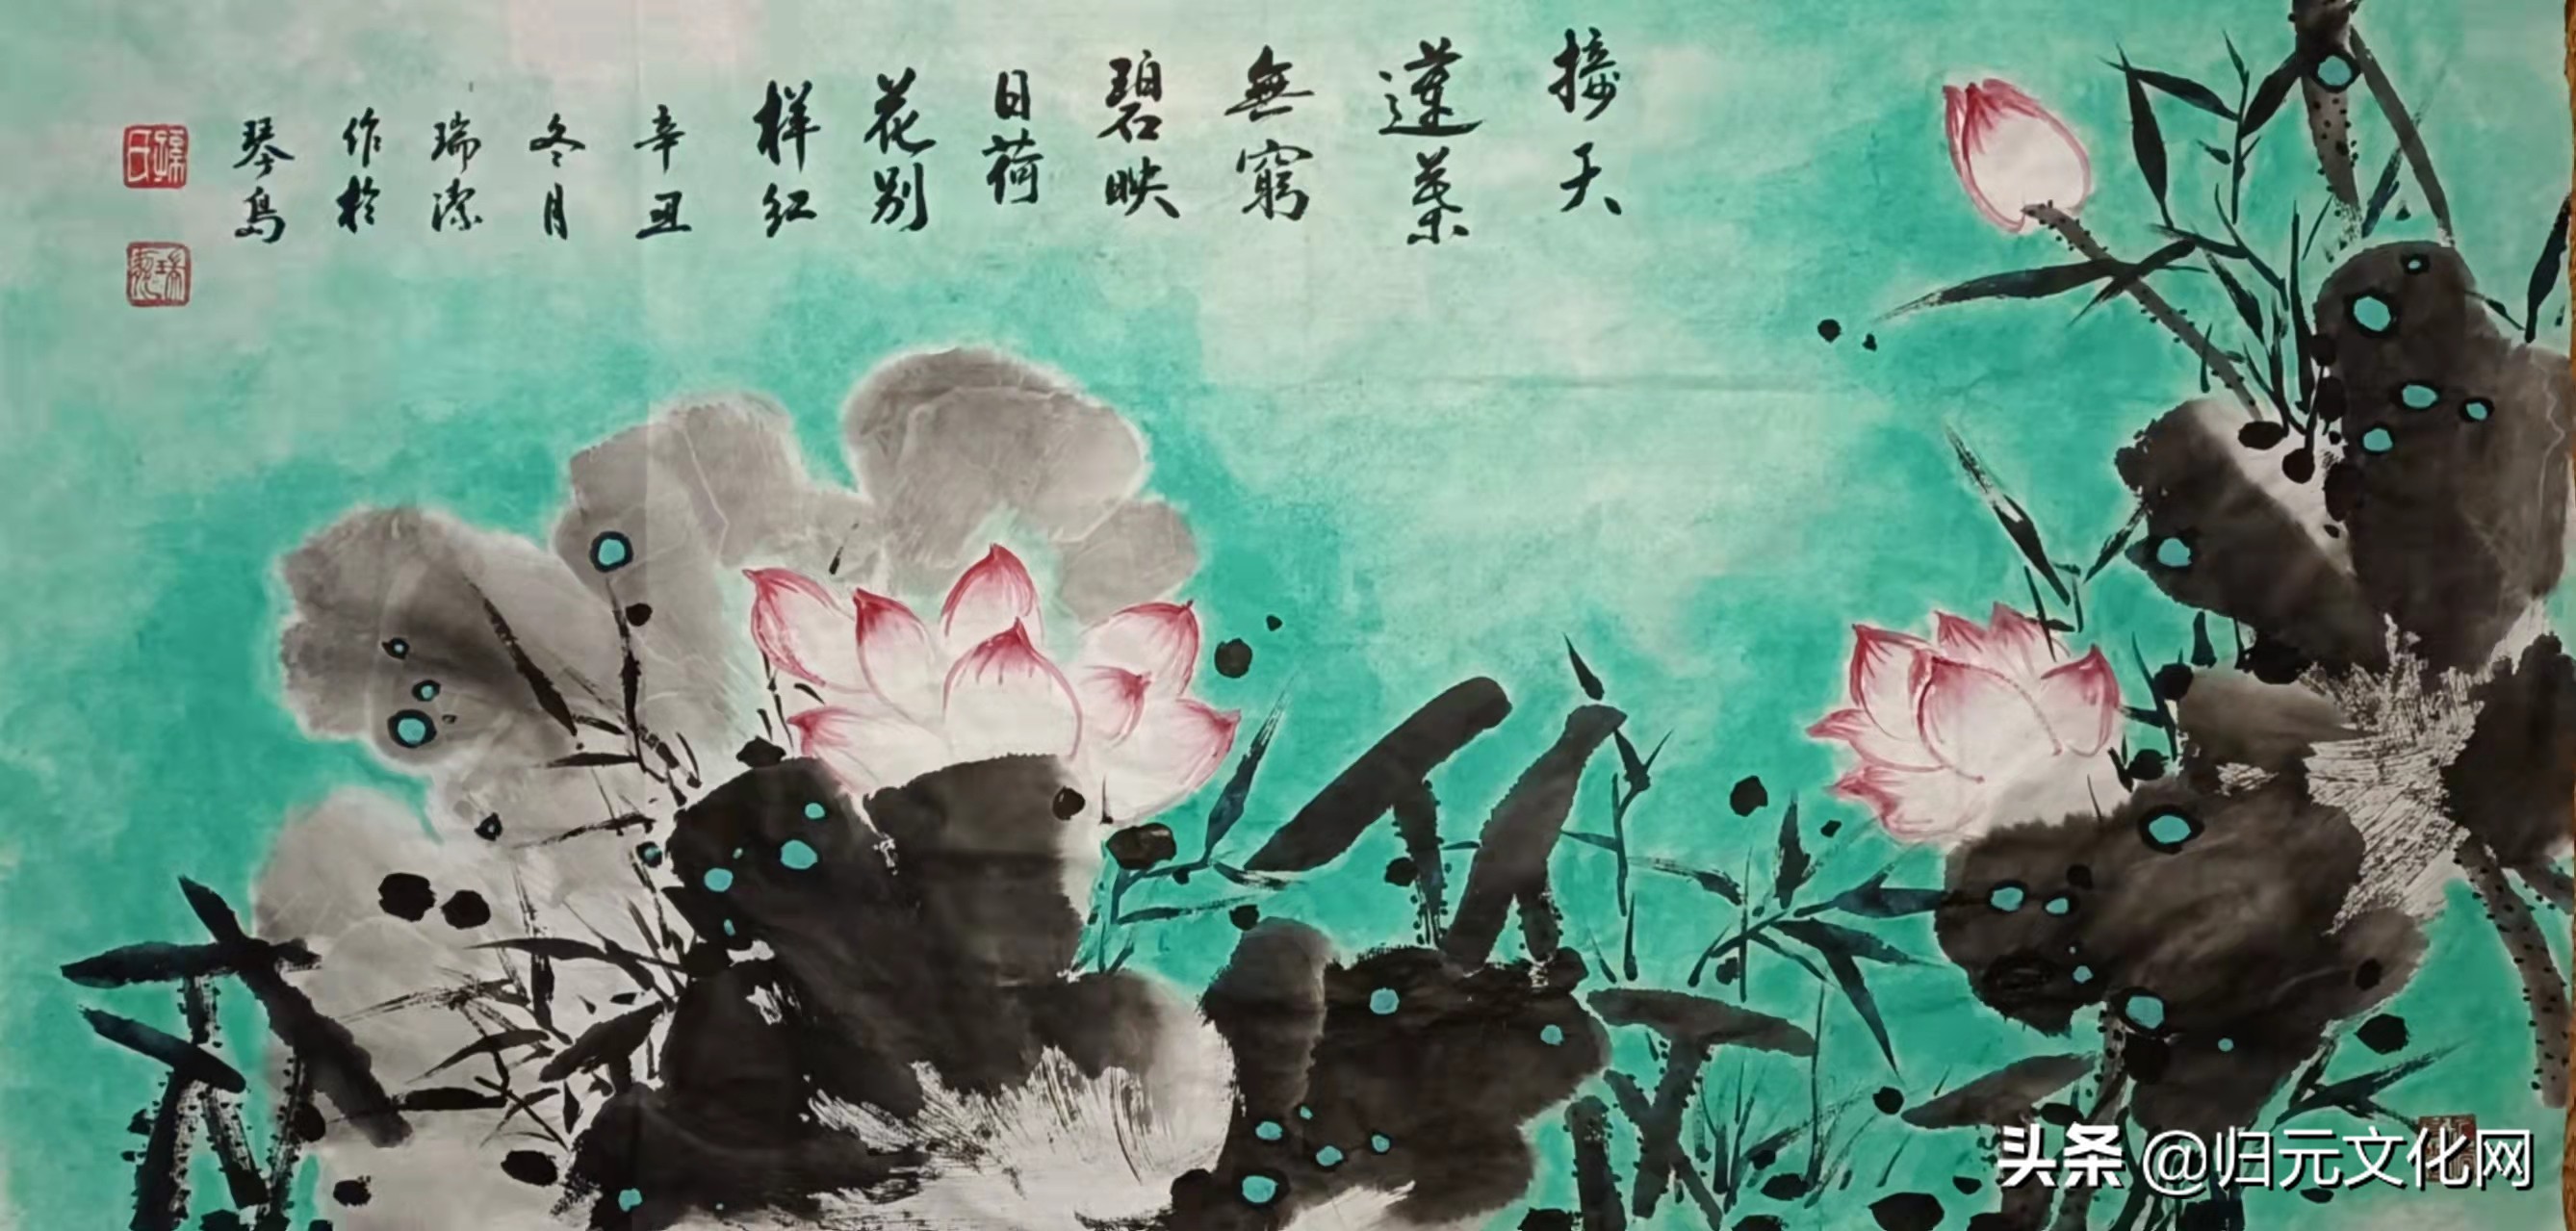 接天
蓮葉
無窮
碧映
日荷
花别
样红
辛丑
冬月
瑞潔
作於
琴島
头条 @归元文化网